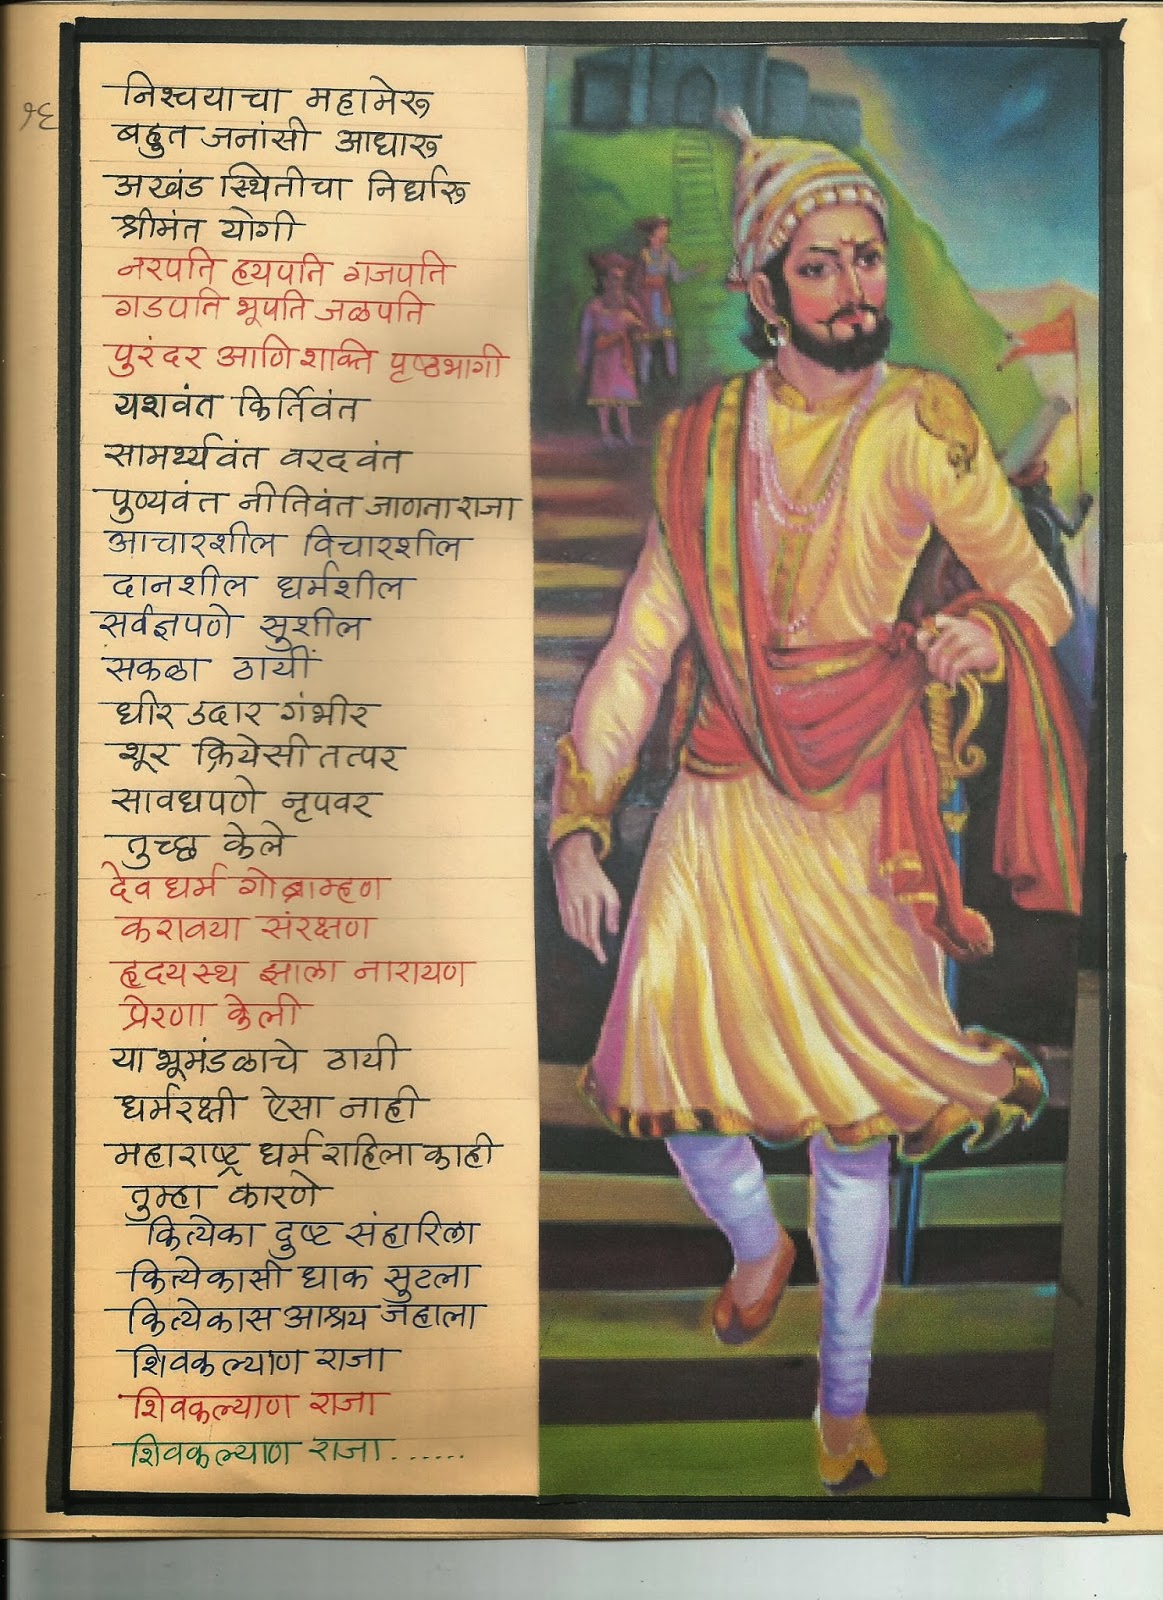 १६
निश्चयाचा महामेरू
बहुत जनांसी आधारू
अखंड स्थितीचा निर्धारू
श्रीमंत योगी
नरपति हयपति गजपति
गडपति भूपति जळपति
पुरंदर आणि शक्ति पृष्ठभागी
यशवंत किर्तिवंत
सामर्थ्यवंत वरदवंत
पुण्यवंत नीतिवंत जाणता राजा
आचारशील विचारशील
दानशील धर्मशील
सर्वज्ञपणे सुशील
सकळा ठायीं
धीर उदार गंभीर
शूर क्रियेसी तत्पर
सावधपणे नृपवर
तुच्छ केले
देव धर्म गोब्राम्हण
करावया संरक्षण
हृदयस्थ झाला नारायण
प्रेरणा केली
या भूमंडळाचे ठायी
धर्मरक्षी ऐसा नाही
महाराष्ट्र धर्म राहिला काही
तुम्हा कारणे
कित्येका दुष्ट संहारिला
कित्येकासी धाक सुटला
कित्येकास आश्रय जहाला
शिवकल्याण राजा
शिवकल्याण राजा
शिवकल्याण राजा.......